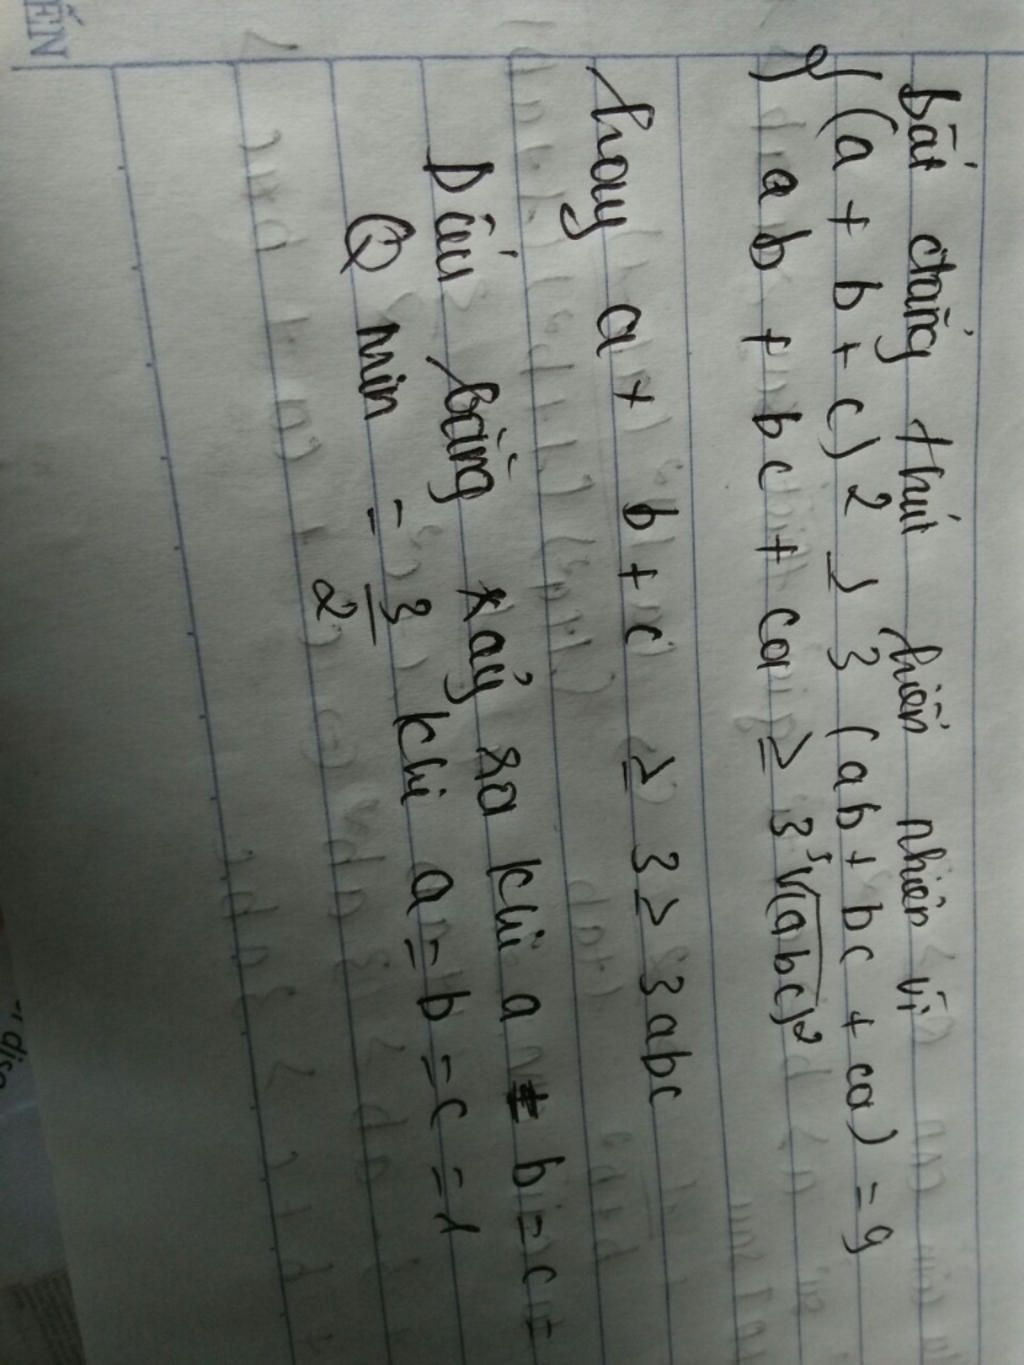 bất đẳng thức hiển nhiên vì
{ (a + b + c) 2 ≥ 3 (ab + bc + ca) = 9
ab + bc + ca ≥ 3 ³√(abc)²
hay a + b + c ≥ 3 ≥ 3abc
Dấu bằng xảy ra khi a = b = c =
Q min = 3/2 khi a = b = c = 1
ẾN